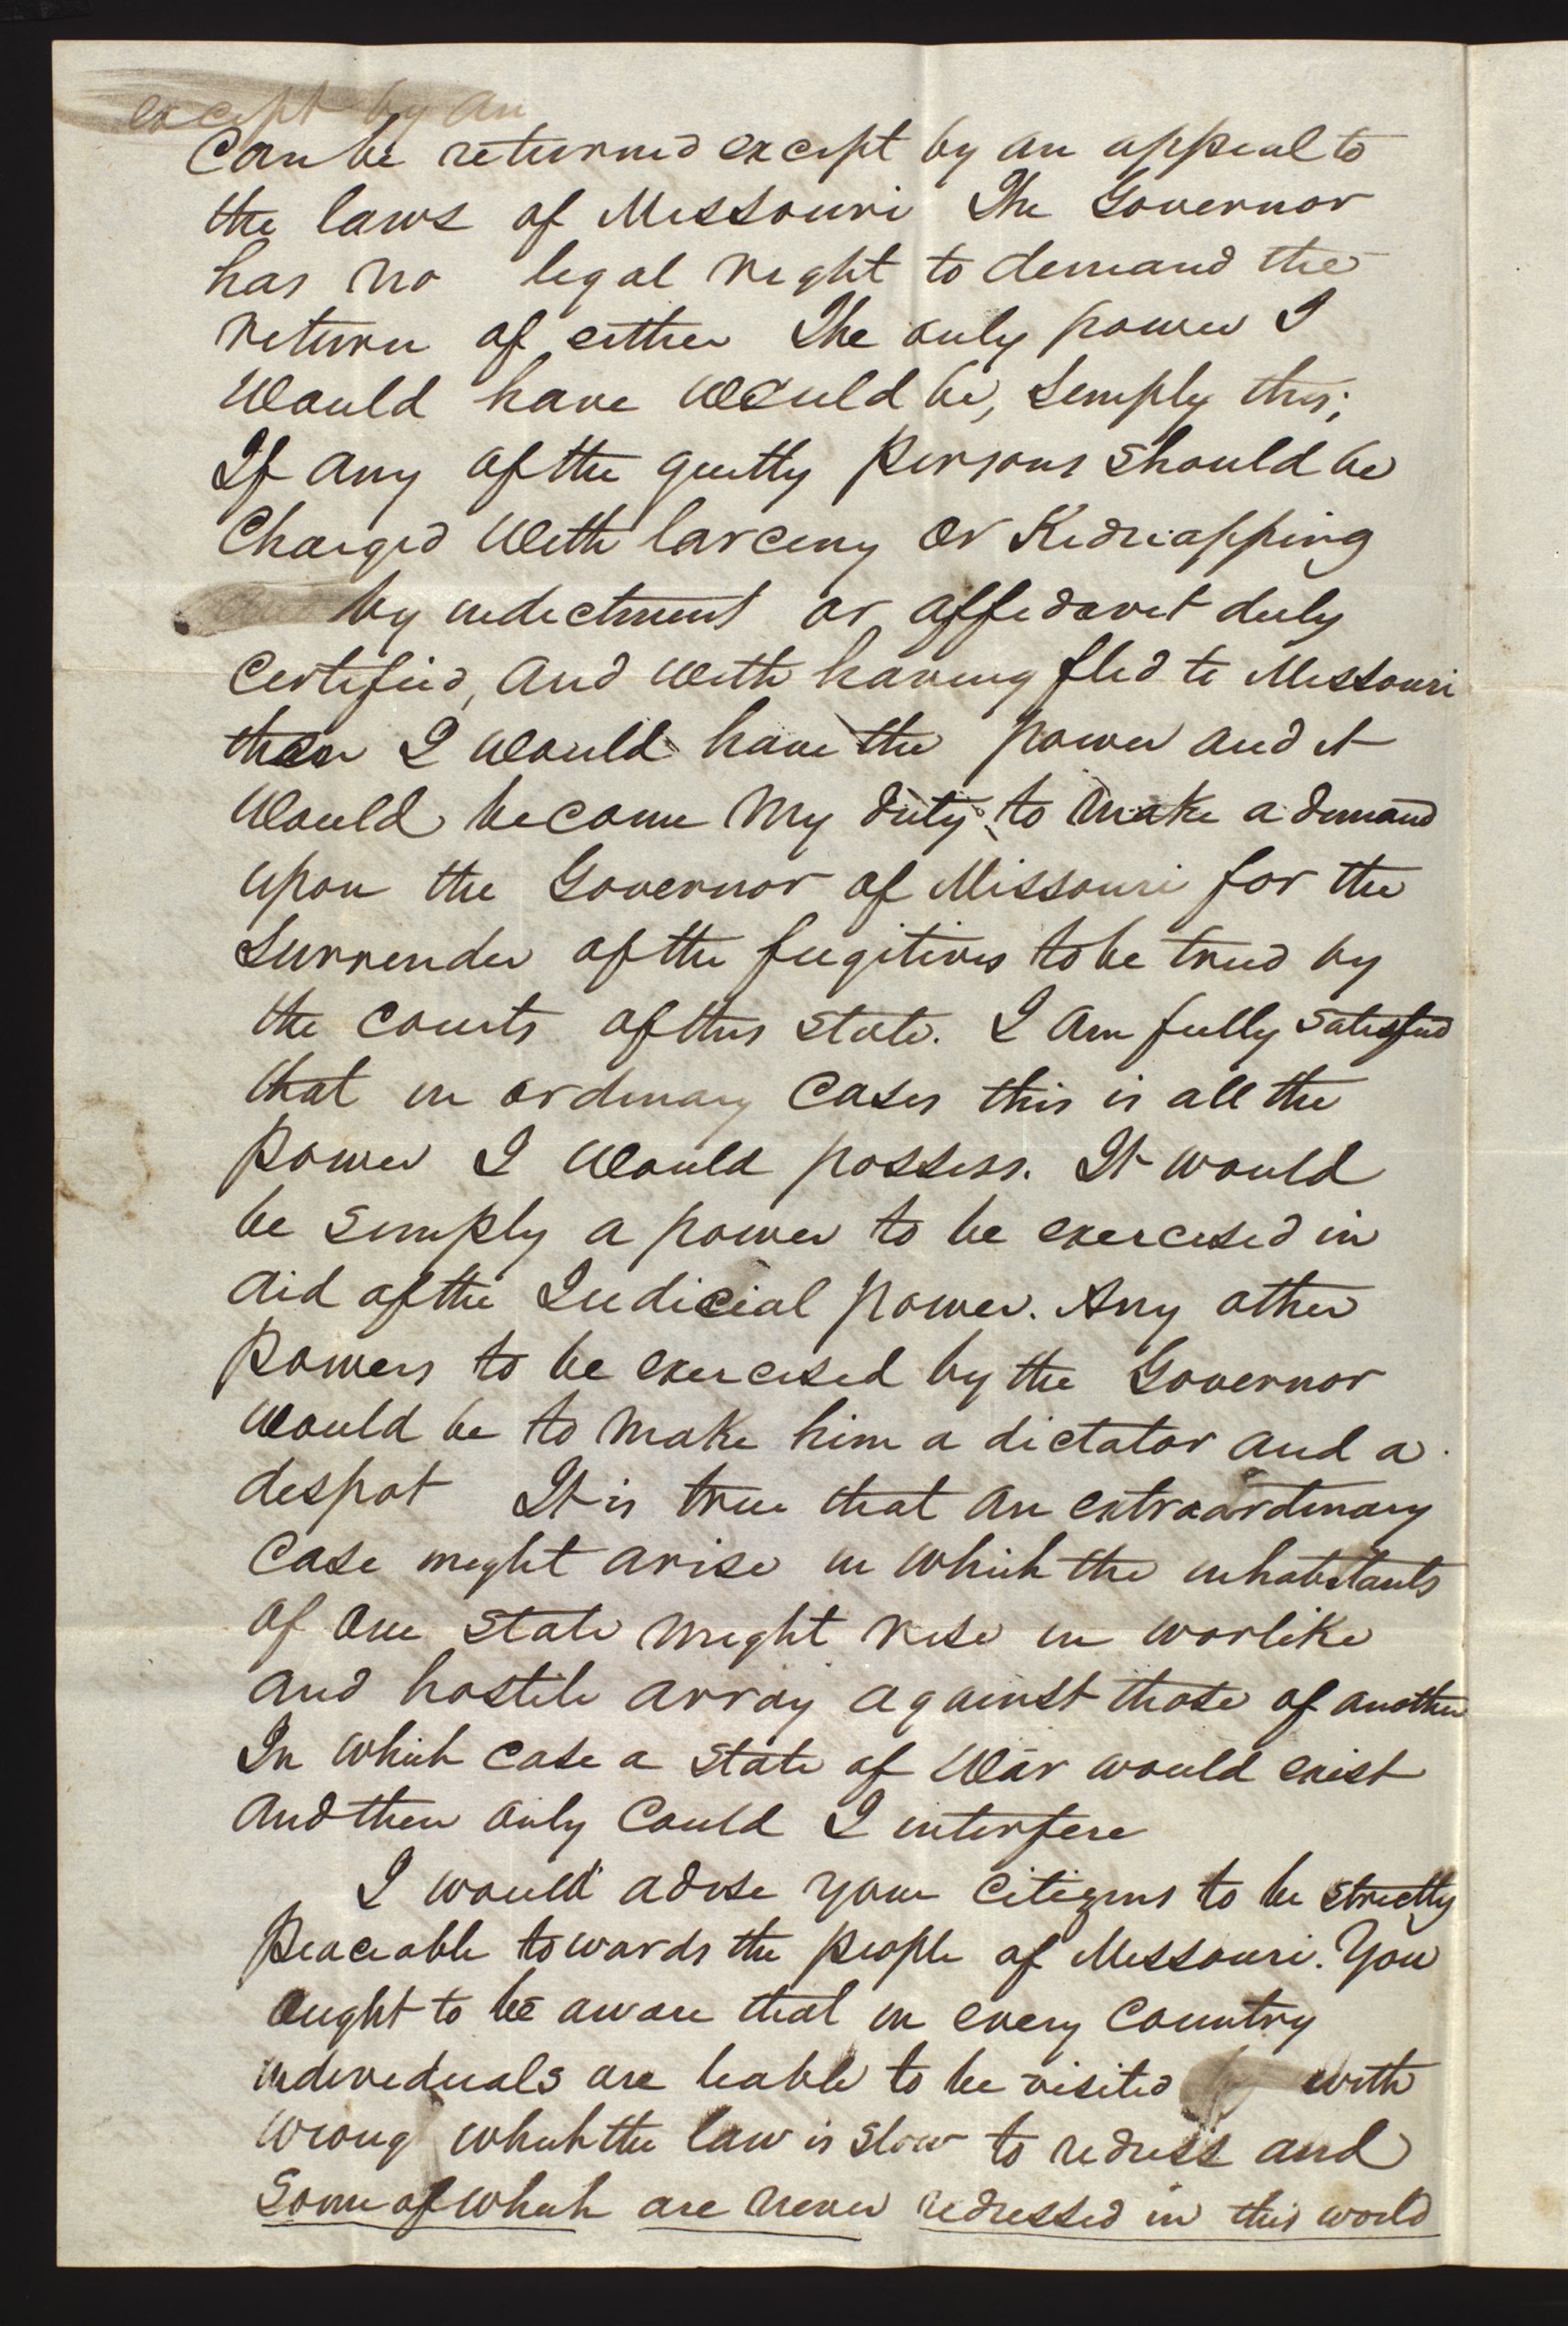 except by an
Can be returned except by an appeal to
the laws of Missouri The Governor
has no legal right to demand the
return of either The only power I
Would have would be, simply this;
If any of the guilty persons should be
Charged with larceny or Kidnapping
by indictment or affidavit duly
Certified, and with having fled to Missouri
then I would have the power and it
Would become my duty to make a demand
upon the Governor of Missouri for the
Surrender of the fugitives to be tried by
the courts of this state. I am fully satisfied
that in ordinary cases this is all the
power I would possess. It would
be simply a power to be exercised in
aid of the Judicial power. Any other
powers to be exercised by the Governor
would be to make him a dictator and a
despot It is true that an extraordinary
case might arise in which the inhabitants
of one state might rise in warlike
and hostile array against those of another
In which case a state of war would exist
and then only could I interfere
I would advise your citizens to be strictly
peaceable towards the people of Missouri. You
ought to be aware that in every country
individuals are liable to be visited with
wrong which the law is slow to redress and
some of which are never redressed in this world